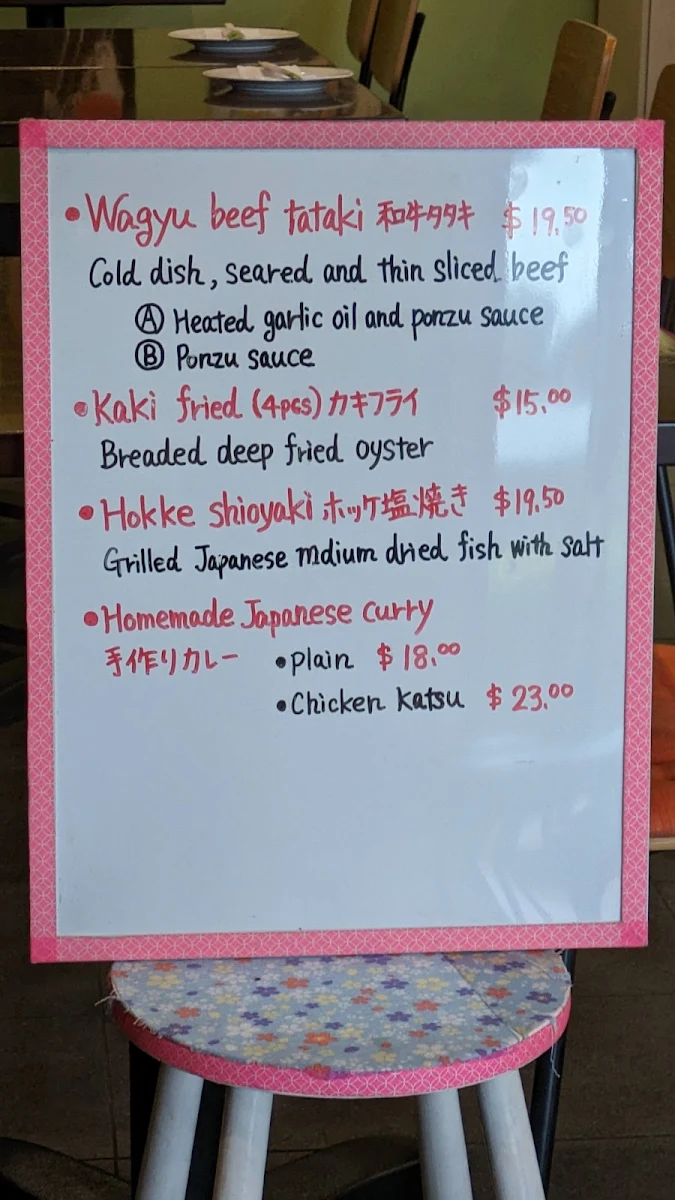 •Wagyu beef tataki 和牛タタキ $19.50
Cold dish, seared and thin sliced beef
Ⓐ Heated garlic oil and ponzu sauce
Ⓑ Ponzu sauce
•Kaki fried (4pcs) カキフライ $15.00
Breaded deep fried oyster
•Hokke shioyaki ホッケ塩焼き $19.50
Grilled Japanese mdium dried fish with salt
•Homemade Japanese curry
手作りカレー •Plain $18.00
•Chicken Katsu $23.00